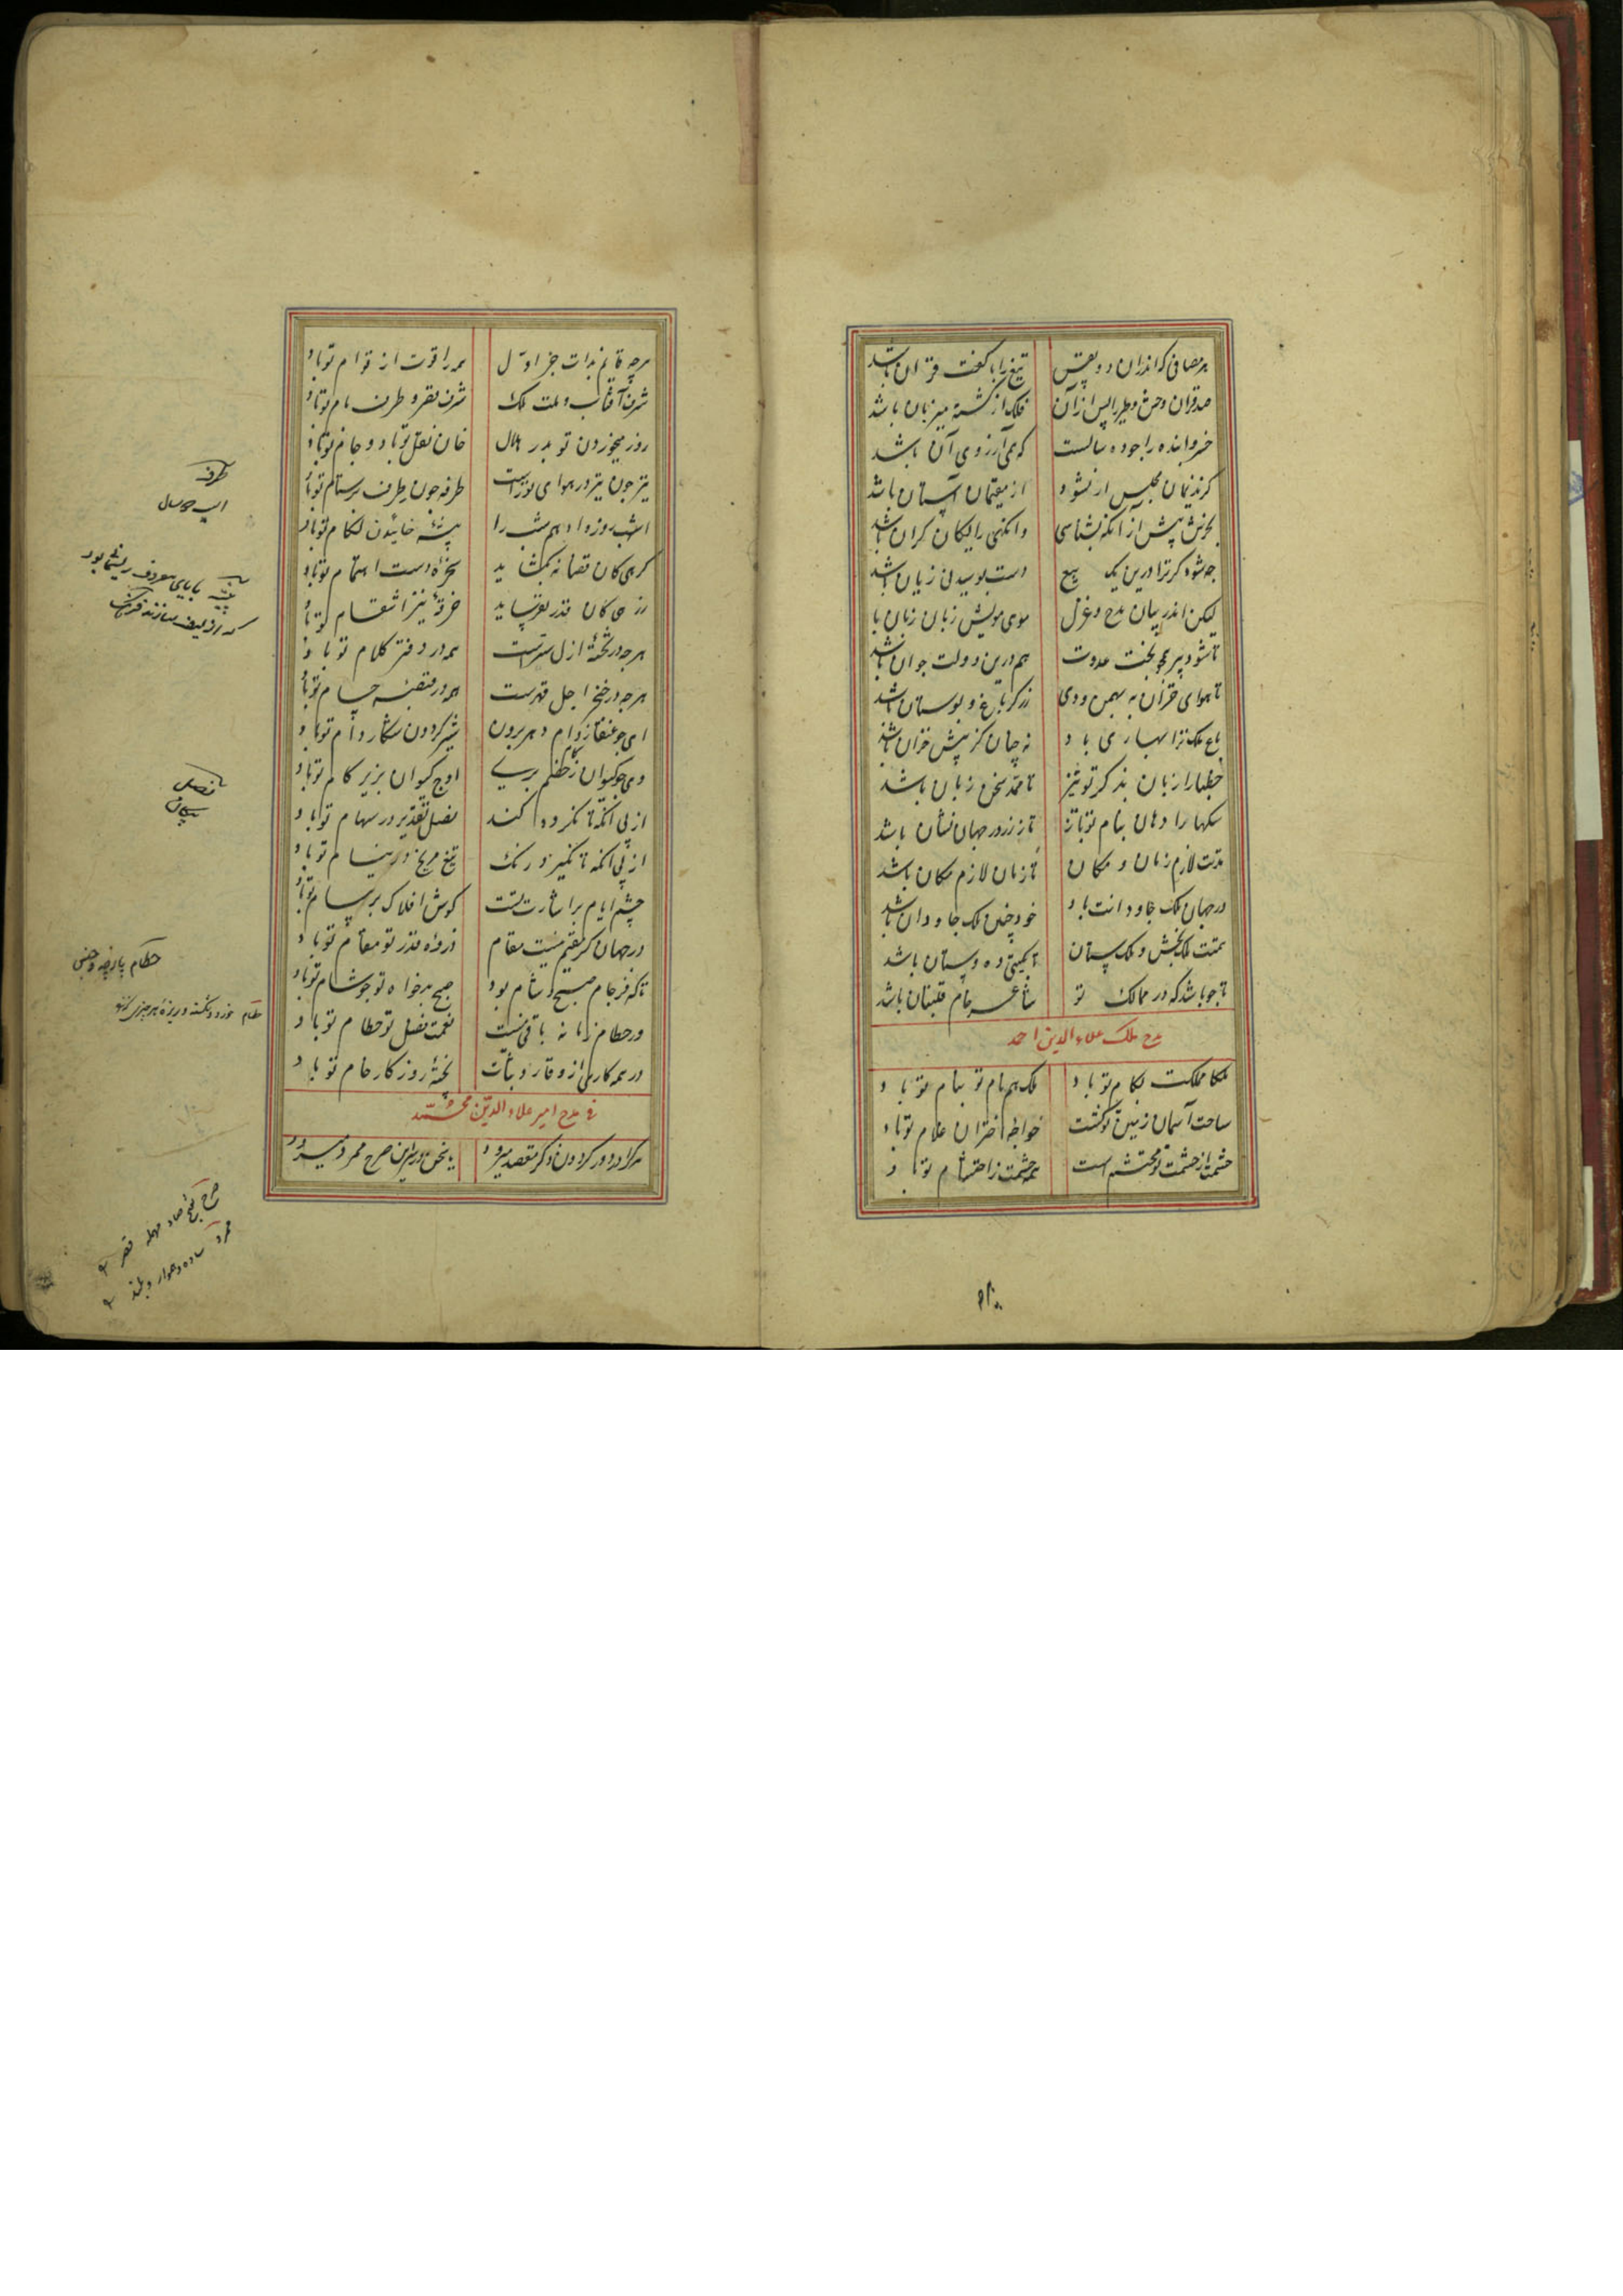 هر مصافی که اندران دو نفس تیغ را با کفت قران باشد
صد قران وحش و طیر را پس از آن فلک از کشته میزبان باشد
خسروا بنده را چو ده سالست که همی آرزوی آن باشد
کز ندیمان مجلس ار نشود از مقیمان آستان باشد
بخرش پیش از آنکه بشناسی وانکهی رایکان کران باشد
چه شود کر ترا درین یک بیع دست بوسیدنی زیان باشد
لیکن اندر بیان مدح و غزل موی مویش زبان زبان با
تا شود پیر همچو بخت عدوت هم درین دولت جوان باشد
تا هوای خزان به بهمن و دی زرکر باغ و بوستان باشد
باغ ملک ترا بهاری باد نه چنان کز پیش خزان باشد
خطبها را زبان بذکر تو تیز تا ممد سخن زبان باشد
سکها را دهان بنام تو باز تا ز زر در جهان نشان باشد
مدت لازم زمان و مکان تا زمان لازم مکان باشد
در جهان ملک جاودانت باد خود چنین ملک جاودان باشد
همتت ملک بخش و ملک ستان تا بکیتی ده و ستان باشد
تا جو باشد که در ممالک تو شاعر خام قلتبان باشد
مدح ملک علاء الدین احمد
ملکا مملکت بکام تو باد ملک همنام تو بنام تو باد
ساحت آسمان زمین تو کشت خواجه اختران غلام تو باد
حشمت از حشمت تو محتشم است همه حشمت ز احتشام تو باد
هرچه قائم بذات جز اول همه را قوت از قوام تو باد
شرف آفتاب و ملت ملک شرف قصر و طرف بام تو باد
روز میخوردن تو بدر هلال خان نقل تو باد و جام تو باد
تیر چون تیر در هوای تو راست طرفه چون طرف بر ستام تو باد
اشهب روز و ادهم شب را پیشه خائیدن لکام تو باد
کرهی کان قضا نه بکشاید سخره دست اهتمام تو باد
زرهی کان قدر نفرساید خرقه تیر انتقام تو باد
هرچه در تخته ازل سر است همه در دفتر کلام تو باد
هرچه در خنجر اجل قهرست همه در قبضه حسام تو باد
ای چو عنقا ز دام دهر برون شیر کردون شکار دام تو باد
وی چو کیوان ز کام خصم بری اوج کیوان بزیر کام تو باد
از پی آنکه تا نکردد کند نصل تقدیر در سهام تو باد
از پی آنکه تا نکیرد زنک تیغ مریخ در نیام تو باد
چشم ایام بر اشارت تست کوش افلاک بر پیام تو باد
در جهان کر مقیم نیست مقام ذروه قدر تو مقام تو باد
تا که فرجام صبح شام بود صبح بدخواه تو چو شام تو باد
ور حطام زمانه باقی نیست نعمت فضل تو حطام تو باد
در همه کارها از وقار و ثبات پخته روزکار خام تو باد
فی مدح امیر علاء الدین محمد
هر کرا در دور کردون ذکر مقصد میرود یا سخن در سر این صرح ممرد میرود
طرفه
اسب
پیشه
بابای معروف
نصل
پیکان
حطام
حطام خرد و شکسته و ریزه هر چیزی
صرح بفتح صاد مهمله قصر
ممرد ساده و هموار و بلند